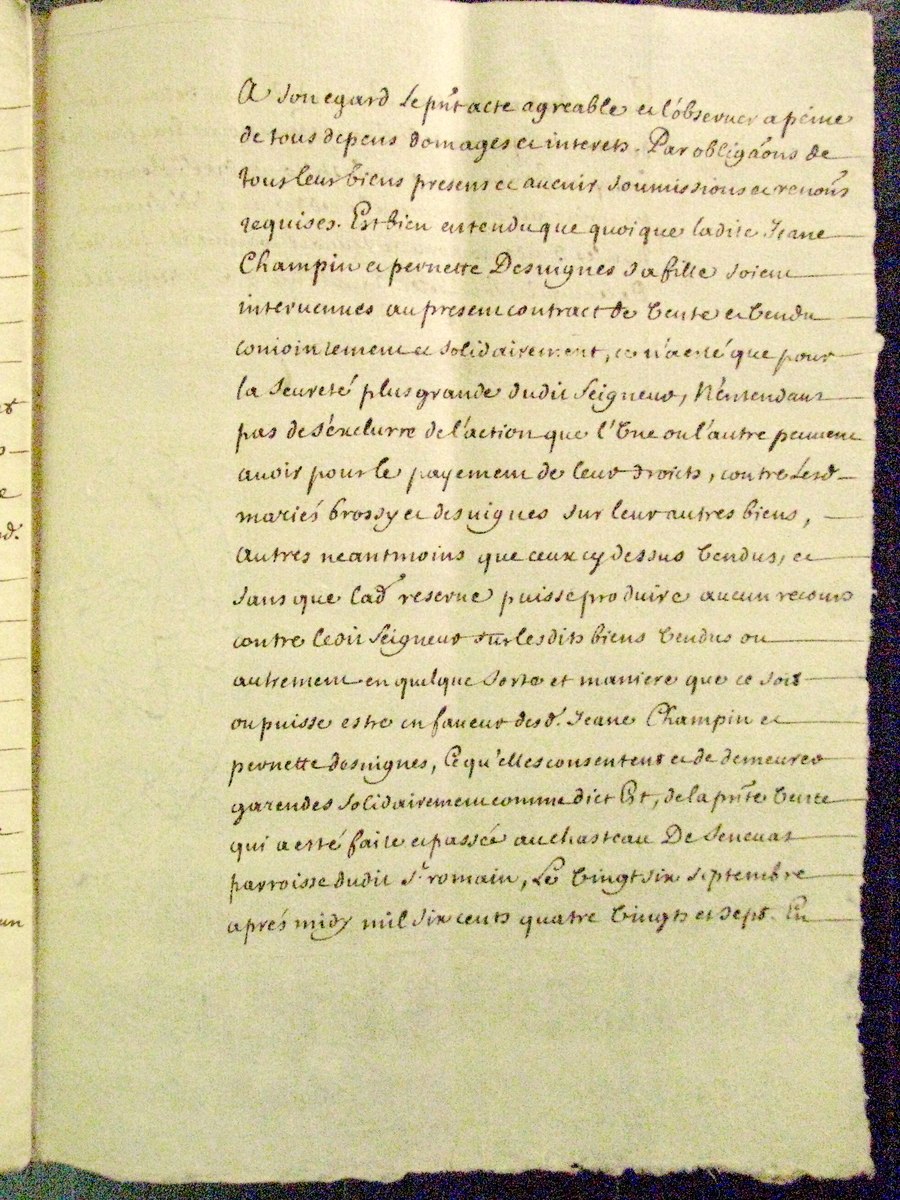 A son egard le pn̄t acte agreable et l'observer a peine
de tous depens domages et interets. Par obligāons de
tous leur biens presens et avenir soumissions et renoñs
requises. Est bien entendu que quoique ladite Jeane
Champin et pernette Desvignes sa fille soient
intervenues au present contract de vente et vendu
conjointement et solidairement, ce n'a esté que pour
la seureté plus grande dudit Seigneur, N'entendans
pas de s'exclurre de l'action que l'Une ou l'autre peuvent
avoir pour le payement de leur droits, contre lesd
mariés brossy et desvignes sur leur autres biens,
autres neantmoins que ceux cy dessus vendus, et
sans que lad. reserve puisse produire aucun recours
contre ledit Seigneur sur lesdits biens vendus ou
autrement en quelque sorte et maniere que ce soit
ou puisse estre en faveur desd. Jeane Champin et
pernette desvignes, Ce qu'elles consentent et de demeurer
garendes solidairement comme dict Est, de la pn̄te vente
qui a esté faite et passée au chasteau De Senevas
parroisse dudit St romain, Le vingt six septembre
aprés midy mil six cents quatre vingts et sept. En